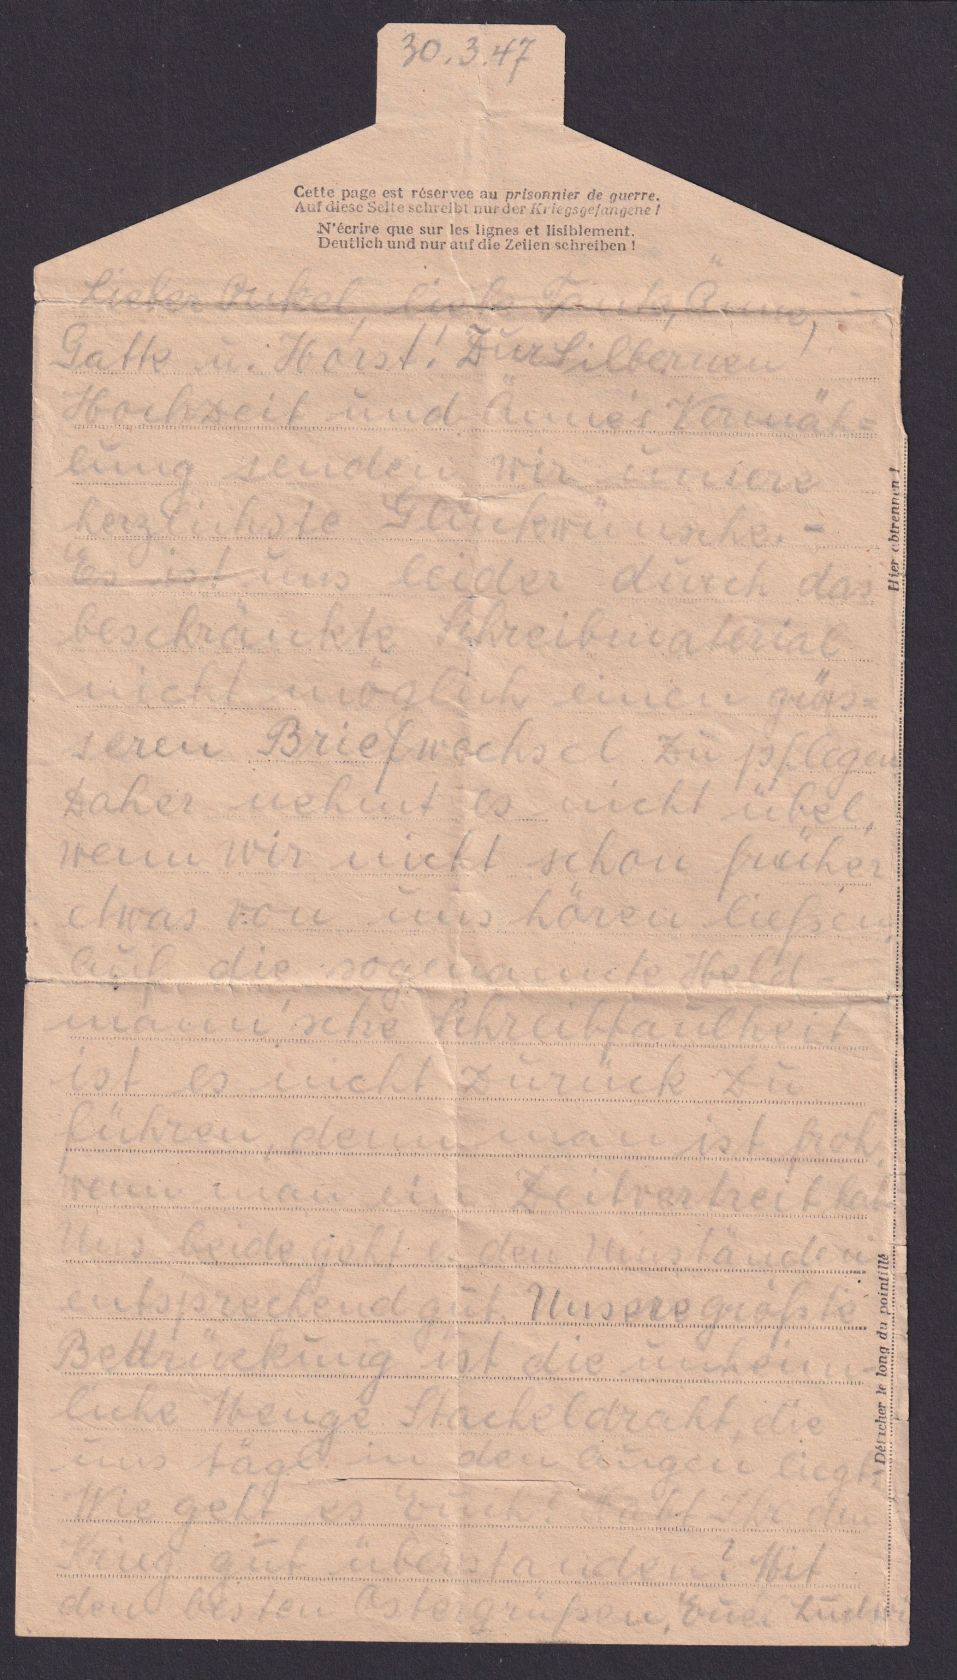 30.3.47
Cette page est réservee au prisonnier de guerre.
Auf diese Seite schreibt nur der Kriegsgefangene!
N'écrire que sur les lignes et lisiblement.
Deutlich und nur auf die Zeilen schreiben!
Lieber Onkel, liebe Tante, Änne,
Gatte u. Horst! Zur Silbernen
Hochzeit und Änne's Vermäh=
lung senden wir unsere
herzlichste Glückwünsche. -
Es ist uns leider durch das
beschränkte Schreibmaterial
nicht möglich einen grös=
seren Briefwechsel zu pflegen
Daher nehmt es nicht übel,
wenn wir nicht schon früher
etwas von uns hören ließen,
Auf die sogenannte Held=
mann'sche Schreibfaulheit
ist es nicht zurück zu
führen, denn man ist froh,
wenn man ein Zeitvertreib hat
Uns beide geht e. den Umständen
entsprechend gut. Unsere größte
Bedrückung ist die unheim
liche Menge Stacheldraht, die
uns tägl. in den Augen liegt.
Wie geht es Euch? Habt Ihr den
Krieg gut überstanden? Mit
den besten Ostergrüßen, Euer Ludwi
Hier abtrennen!
Détacher le long du pointillé